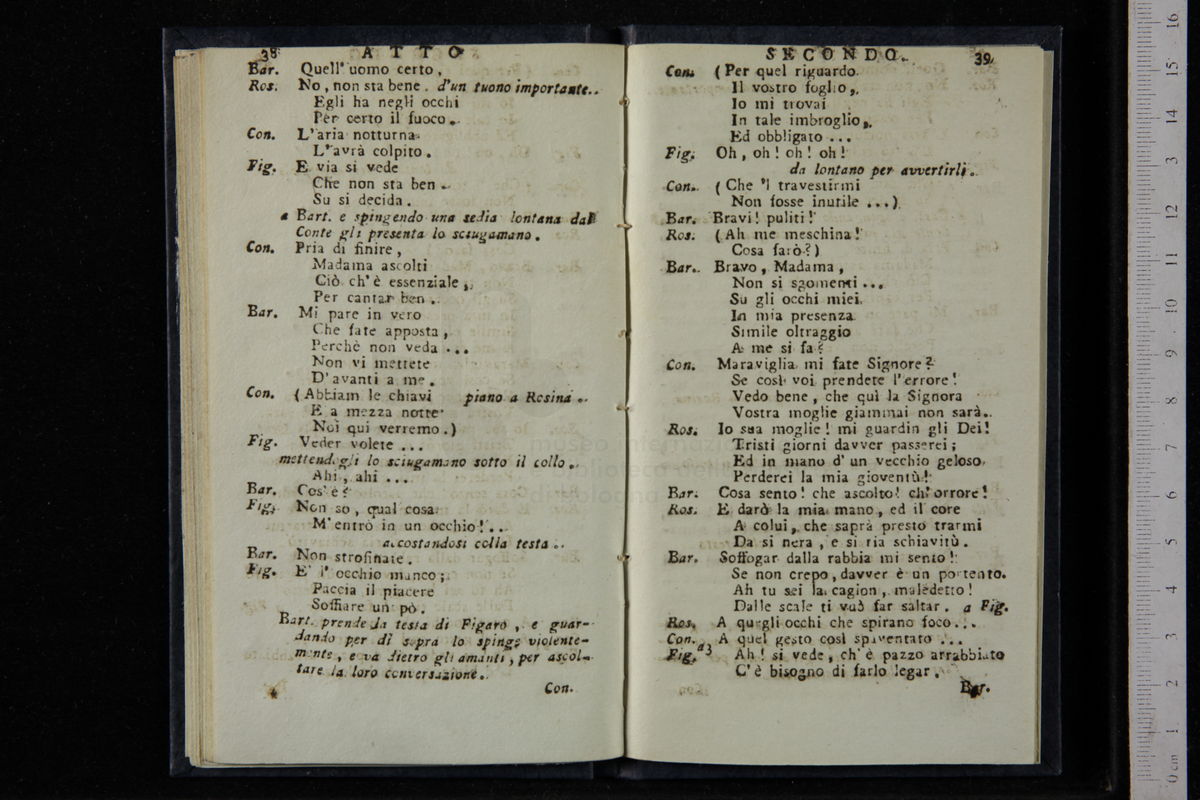 38 ATTO
Bar. Quell' uomo certo,
Ros. No, non sta bene. d'un tuono importante..
Egli ha negli occhi
Per certo il fuoco.
Con. L'aria notturna
L'avrà colpito.
Fig. E via si vede
Che non sta ben.
Su si decida.
a Bart. e spingendo una sedia lontana dal
Conte gli presenta lo sciugamano.
Con. Pria di finire,
Madama ascolti
Ciò ch'è essenziale,
Per cantar ben.
Bar. Mi pare in vero
Che fate apposta,
Perchè non veda ...
Non vi mettete
D'avanti a me.
Con. (Abbiam le chiavi piano a Rosina.
E a mezza notte
Noi qui verremo.)
Fig. Veder volete ...
mettendogli lo sciugamano sotto il collo.
Ahi, ahi ...
Bar. Cos'è?
Fig. Non so, qual cosa
M'entrò in un occhio!...
accostandosi colla testa.
Bar. Non strofinate.
Fig. E' l'occhio manco;
Faccia il piacere
Soffiare un pò.
Bart. prende la testa di Figaro, e guar-
dando per di sopra lo spinge violente-
mente, e và dietro gli amanti, per ascol-
tare la loro conversazione.
Con.
SECONDO. 39
Con. (Per quel riguardo
Il vostro foglio,
Io mi trovai
In tale imbroglio,
Ed obbligato ...
Fig. Oh, oh! oh! oh!
da lontano per avvertirli.
Con. (Che 'l travestirmi
Non fosse inutile ...)
Bar. Bravi! puliti!
Ros. (Ah me meschina!
Cosa farò?)
Bar. Bravo, Madama,
Non si sgomenti ...
Su gli occhi miei
In mia presenza
Simile oltraggio
A me si fa?
Con. Maraviglia mi fate Signore?
Se così voi prendete l'errore!
Vedo bene, che quì la Signora
Vostra moglie giammai non sarà.
Ros. Io sua moglie! mi guardin gli Dei!
Tristi giorni davver passerei;
Ed in mano d'un vecchio geloso
Perderei la mia gioventù!
Bar. Cosa sento! che ascolto! ch'orrore!
Ros. E darò la mia mano, ed il core
A colui, che saprà presto trarmi
Da si nera, e si ria schiavitù.
Bar. Soffogar dalla rabbia mi sento!
Se non crepo, davver è un portento.
Ah tu sei la cagion, maledetto!
Dalle scale ti vuò far saltar. a Fig.
Ros. A quegli occhi che spirano foco...
Con. A quel gesto così spaventato ...
Fig. a3 Ah! si vede, ch'è pazzo arrabbiato
C'è bisogno di farlo legar.
Bar.